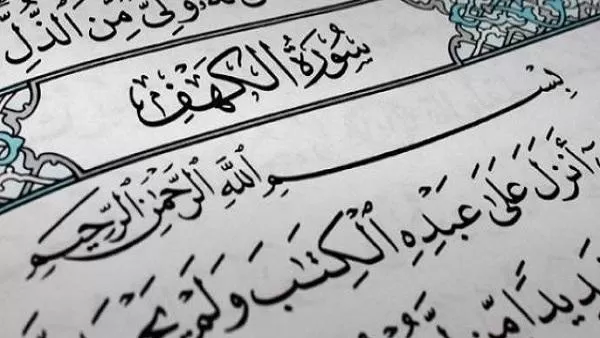 وَلِىٌّ مِّنَ ٱلذُّلِّ
سُورَةُ الكَهْفِ
بِسْمِ ٱللَّهِ ٱلرَّحْمَٰنِ ٱلرَّحِيمِ
أَنزَلَ عَلَىٰ عَبْدِهِ ٱلْكِتَٰبَ وَلَمْ
مِّن